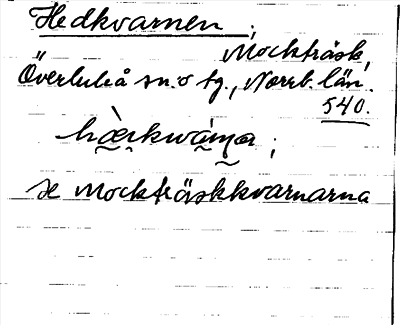 Hedkvarnen ;
Mockträsk,
Överluleå sn. o tg., Norrb. län.
540.
se Mockträskkvarnarna